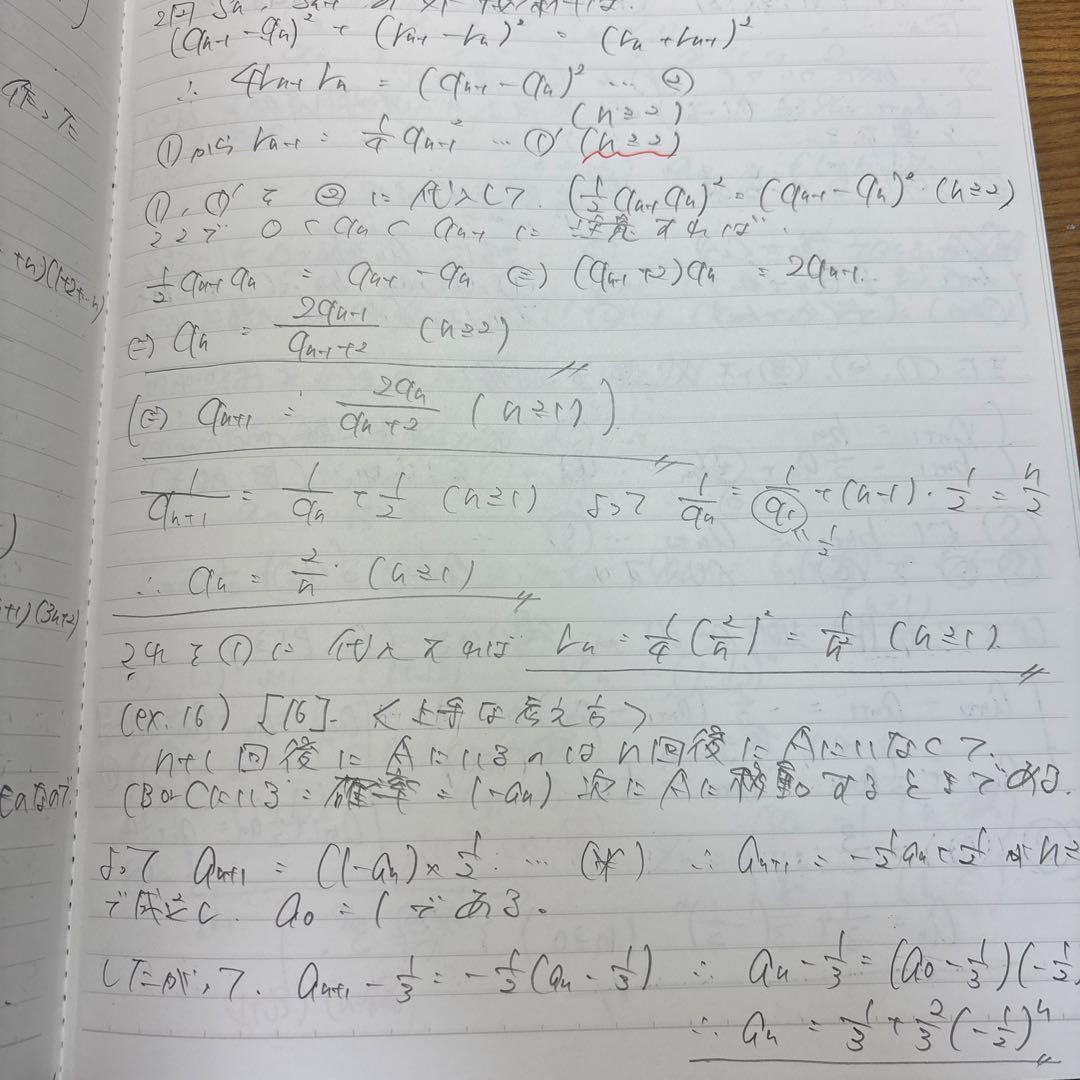 (qₙ₋₁ - qₙ)² + (rₙ₋₁ - rₙ)² = (rₙ + rₙ₋₁)²
∴ 4rₙ₋₁rₙ = (qₙ₋₁ - qₙ)² … ②
(n≧2)
①から rₙ₋₁ = 1/4 qₙ₋₁² … ①' (n≧2)
①, ①'を②に代入して. (1/2 qₙ₋₁qₙ)² = (qₙ₋₁ - qₙ)² (n≧2)
ここで 0 < qₙ < qₙ₋₁ に注意すれば
1/2 qₙ₋₁qₙ = qₙ₋₁ - qₙ ⇔ (qₙ₋₁+2)qₙ = 2qₙ₋₁.
⇔ qₙ = 2qₙ₋₁/(qₙ₋₁+2) (n≧2)
(⇔ qₙ₊₁ = 2qₙ/(qₙ+2) (n≧1))
1/qₙ₊₁ = 1/qₙ + 1/2 (n≧1) よって 1/qₙ = 1/q₁ + (n-1)・1/2 = n/2
1/2
∴ qₙ = 2/n. (n≧1)
これを①に代入すれば rₙ = 1/4 (2/n)² = 1/n² (n≧1).
(ex.16) [16]. <上手な考え方>
n+1回後にAにいるのはn回後にAにいなくて.
(BorCにいる:確率=1-aₙ) 次にAに移動するときである.
よって aₙ₊₁ = (1-aₙ)×1/2 … (*) ∴ aₙ₊₁ = -1/2aₙ+1/2 が n≧
で成立し. a₀ = 1である。
したがって. aₙ₊₁ - 1/3 = -1/2(aₙ - 1/3) ∴ aₙ - 1/3 = (a₀ - 1/3)(-1/2
∴ aₙ = 1/3 + 2/3(-1/2)ⁿ
+n)(1+2+…n)
+1)(3n+2)